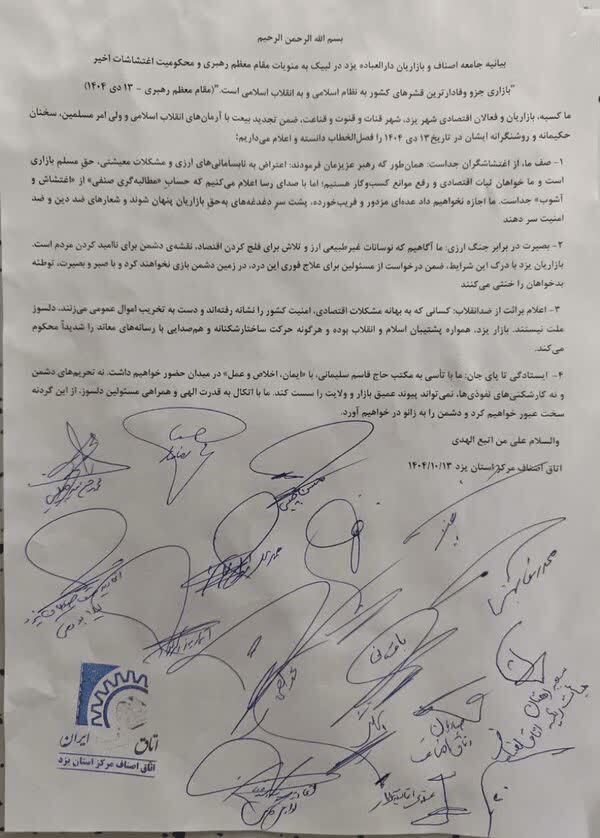 بسم الله الرحمن الرحیم
بیانیه جامعه اصناف و بازاریان دارالعباده یزد در لبیک به منویات مقام معظم رهبری و محکومیت اغتشاشات اخیر
"بازاری جزو وفادارترین قشرهای کشور به نظام اسلامی و به انقلاب اسلامی است."(مقام معظم رهبری – ۱۳ دی ۱۴۰۴)
ما کسبه، بازاریان و فعالان اقتصادی شهر یزد، شهر قنات و قنوت و قناعت، ضمن تجدید بیعت با آرمان‌های انقلاب اسلامی و ولی امر مسلمین، سخنان
حکیمانه و روشنگرانه ایشان در تاریخ ۱۳ دی ۱۴۰۴ را فصل‌الخطاب دانسته و اعلام می‌داریم:
۱– صف ما، از اغتشاشگران جداست: همان‌طور که رهبر عزیزمان فرمودند: اعتراض به نابسامانی‌های ارزی و مشکلات معیشتی، حق مسلم بازاری
است و ما خواهان ثبات اقتصادی و رفع موانع کسب‌وکار هستیم؛ اما با صدای رسا اعلام می‌کنیم که حساب «مطالبه‌گری صنفی» از «اغتشاش و
آشوب» جداست. ما اجازه نخواهیم داد عده‌ای مزدور و فریب‌خورده، پشت سر دغدغه‌های به‌حق بازاریان پنهان شوند و شعارهای ضد دین و ضد
امنیت سر دهند
۲– بصیرت در برابر جنگ ارزی: ما آگاهیم که نوسانات غیرطبیعی ارز و تلاش برای فلج کردن اقتصاد، نقشه‌ی دشمن برای ناامید کردن مردم است.
بازاریان یزد با درک این شرایط، ضمن درخواست از مسئولین برای علاج فوری این درد، در زمین دشمن بازی نخواهند کرد و با صبر و بصیرت، توطئه
بدخواهان را خنثی می‌کنند
۳– اعلام برائت از ضدانقلاب: کسانی که به بهانه مشکلات اقتصادی، امنیت کشور را نشانه رفته‌اند و دست به تخریب اموال عمومی می‌زنند، دلسوز
ملت نیستند. بازار یزد، همواره پشتیبان اسلام و انقلاب بوده و هرگونه حرکت ساختارشکنانه و هم‌صدایی با رسانه‌های معاند را شدیداً محکوم
می‌کند.
۴– ایستادگی تا پای جان: ما با تأسی به مکتب حاج قاسم سلیمانی، با «ایمان، اخلاص و عمل» در میدان حضور خواهیم داشت. نه تحریم‌های دشمن
و نه کارشکنی‌های نفوذی‌ها، نمی‌تواند پیوند عمیق بازار و ولایت را سست کند. ما با اتکال به قدرت الهی و همراهی مسئولین دلسوز، از این گردنه
سخت عبور خواهیم کرد و دشمن را به زانو در خواهیم آورد.
والسلام علی من اتبع الهدی
اتاق اصناف مرکز استان یزد ۱۴۰۴/۱۰/۱۳
اتاق ایران
اتاق اصناف مرکز استان یزد